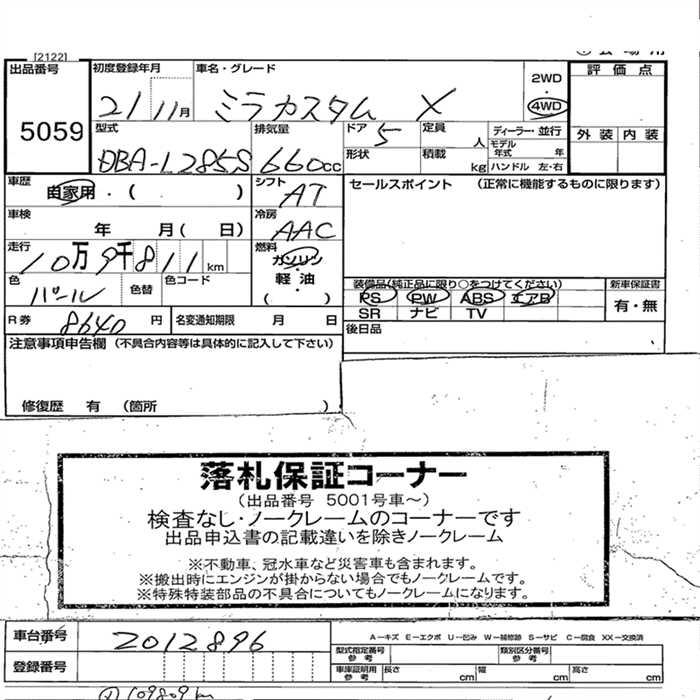 [2122]
出品番号 初度登録年月 車名・グレード 2WD 評価点
5059 21 11月 ミラカスタム X 4WD
型式 排気量 ドア 定員 ディーラー・並行 外装 内装
DBA-L285S 660cc 5 人 モデル年式 年
形状 積載 kg ハンドル 左・右
車歴 自家用・( ) シフト AT セールスポイント (正常に機能するものに限ります)
車検 年 月( 日) 冷房 AAC
走行 10万9千811km 燃料 ガソリン・軽油 ( )
装備品(純正品に限り○をつけてください) 新車保証書
色 パール 色替 色コード PS PW ABS エアB 有・無
SR ナビ TV
R券 8640円 名変通知期限 月 日 後日品
注意事項申告欄 (不具合内容等は具体的に記入して下さい)
修復歴 有 (箇所 )
落札保証コーナー
(出品番号 5001号車~)
検査なし・ノークレームのコーナーです
出品申込書の記載違いを除きノークレーム
※不動車、冠水車など災害車も含まれます。
※搬出時にエンジンが掛からない場合でもノークレームです。
※特殊特装部品の不具合についてもノークレームになります。
車台番号 2012896 A-キズ E-エクボ U-凹み W-補修跡 S-サビ C-腐食 XX-交換済
型式指定番号 参考 類別区分番号 参考
登録番号 車庫証明用 参考 長さ cm 幅 cm 高さ cm
109809km